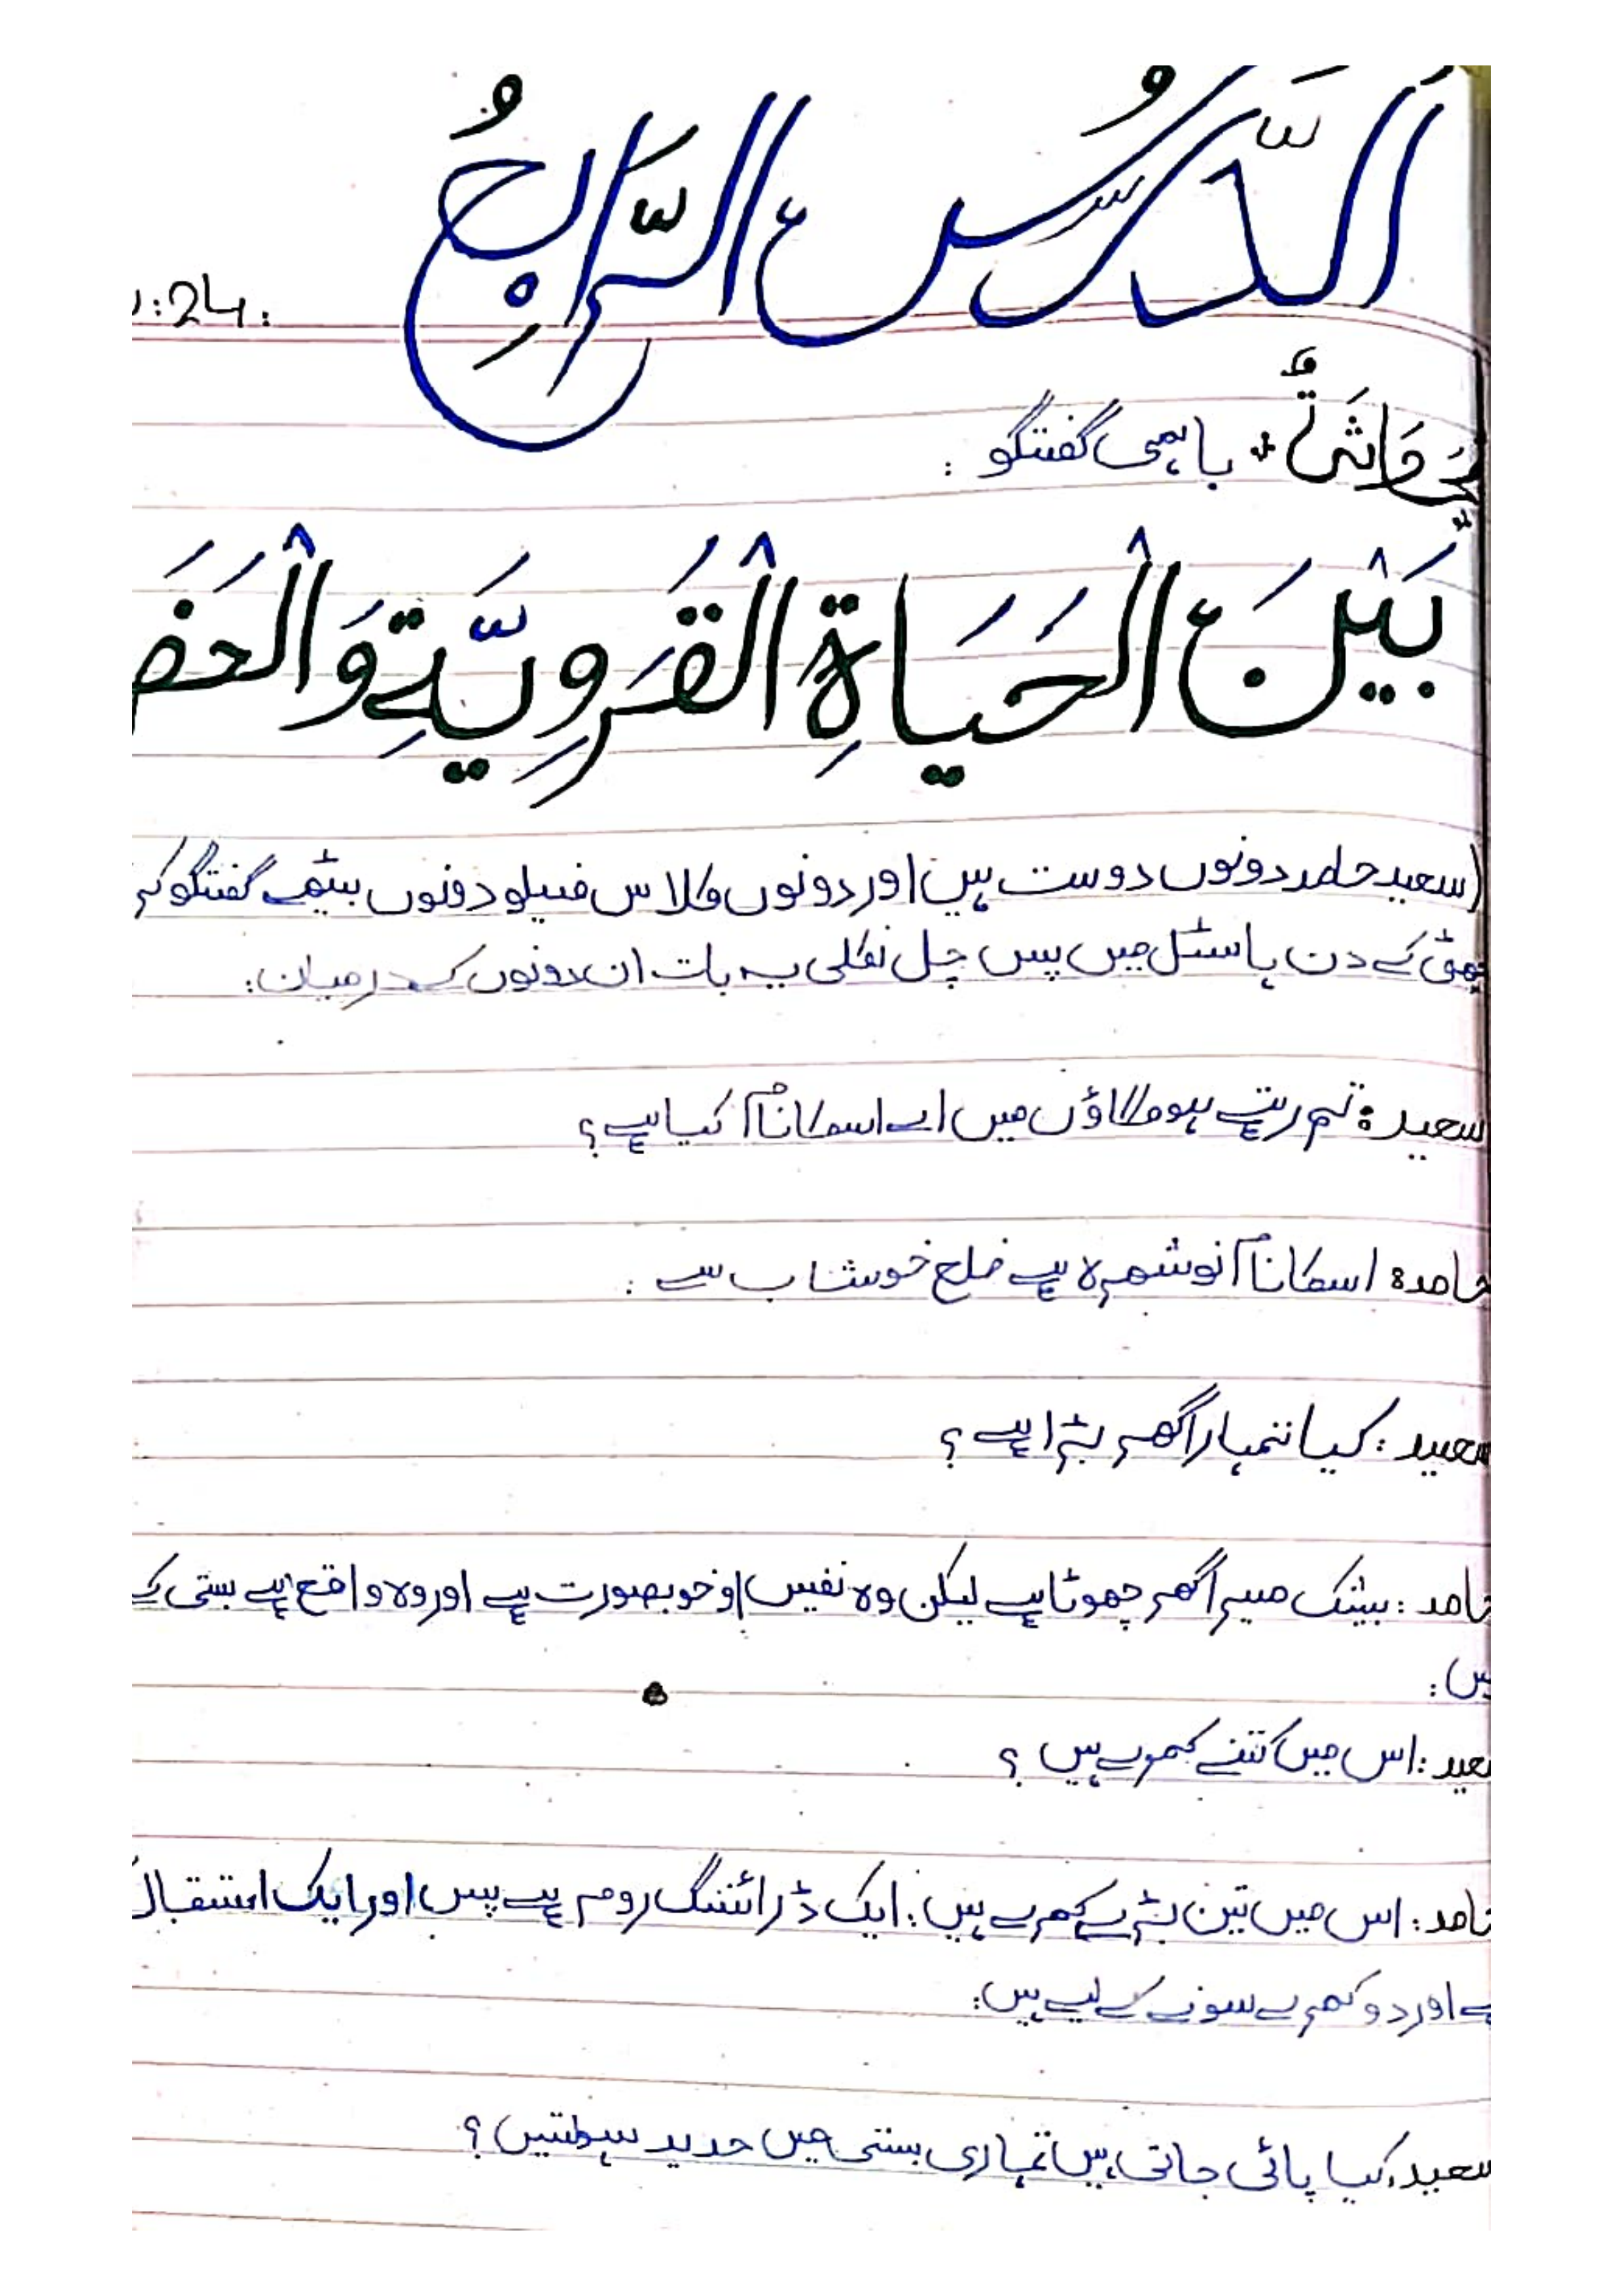 اَلدَّرْسُ الرَّابِعُ
:24:
مُحَادَثَۃٌ: باہمی گفتگو:
بَيْنَ الْحَيَاةِ الْقَرَوِيَّةِ وَالْحَضَ
(سعید حامد دونوں دوست ہیں اور دونوں کلاس فیلو دونوں بیٹھے گفتگو کر
چھٹی کے دن ہاسٹل میں پس چل نکلی یہ بات ان دونوں کے درمیان:
سعید: تم رہتے ہو گاؤں میں اسکا نام کیا ہے؟
حامد: اسکا نام نوشہرہ ہے ضلع خوشاب سے:
سعید: کیا تمہارا گھر بڑا ہے؟
حامد: بیشک میرا گھر چھوٹا ہے لیکن وہ نفیس او خوبصورت ہے اور وہ واقع ہے بستی کے
میں:
سعید: اس میں کتنے کمرے ہیں؟
حامد: اس میں تین بڑے کمرے ہیں: ایک ڈرائننگ روم ہے پس اور ایک استقبال
ہے اور دو کمرے سونے کے لیے ہیں:
سعید: کیا پائی جاتی ہیں تمہاری بستی میں جدید سہولتیں؟